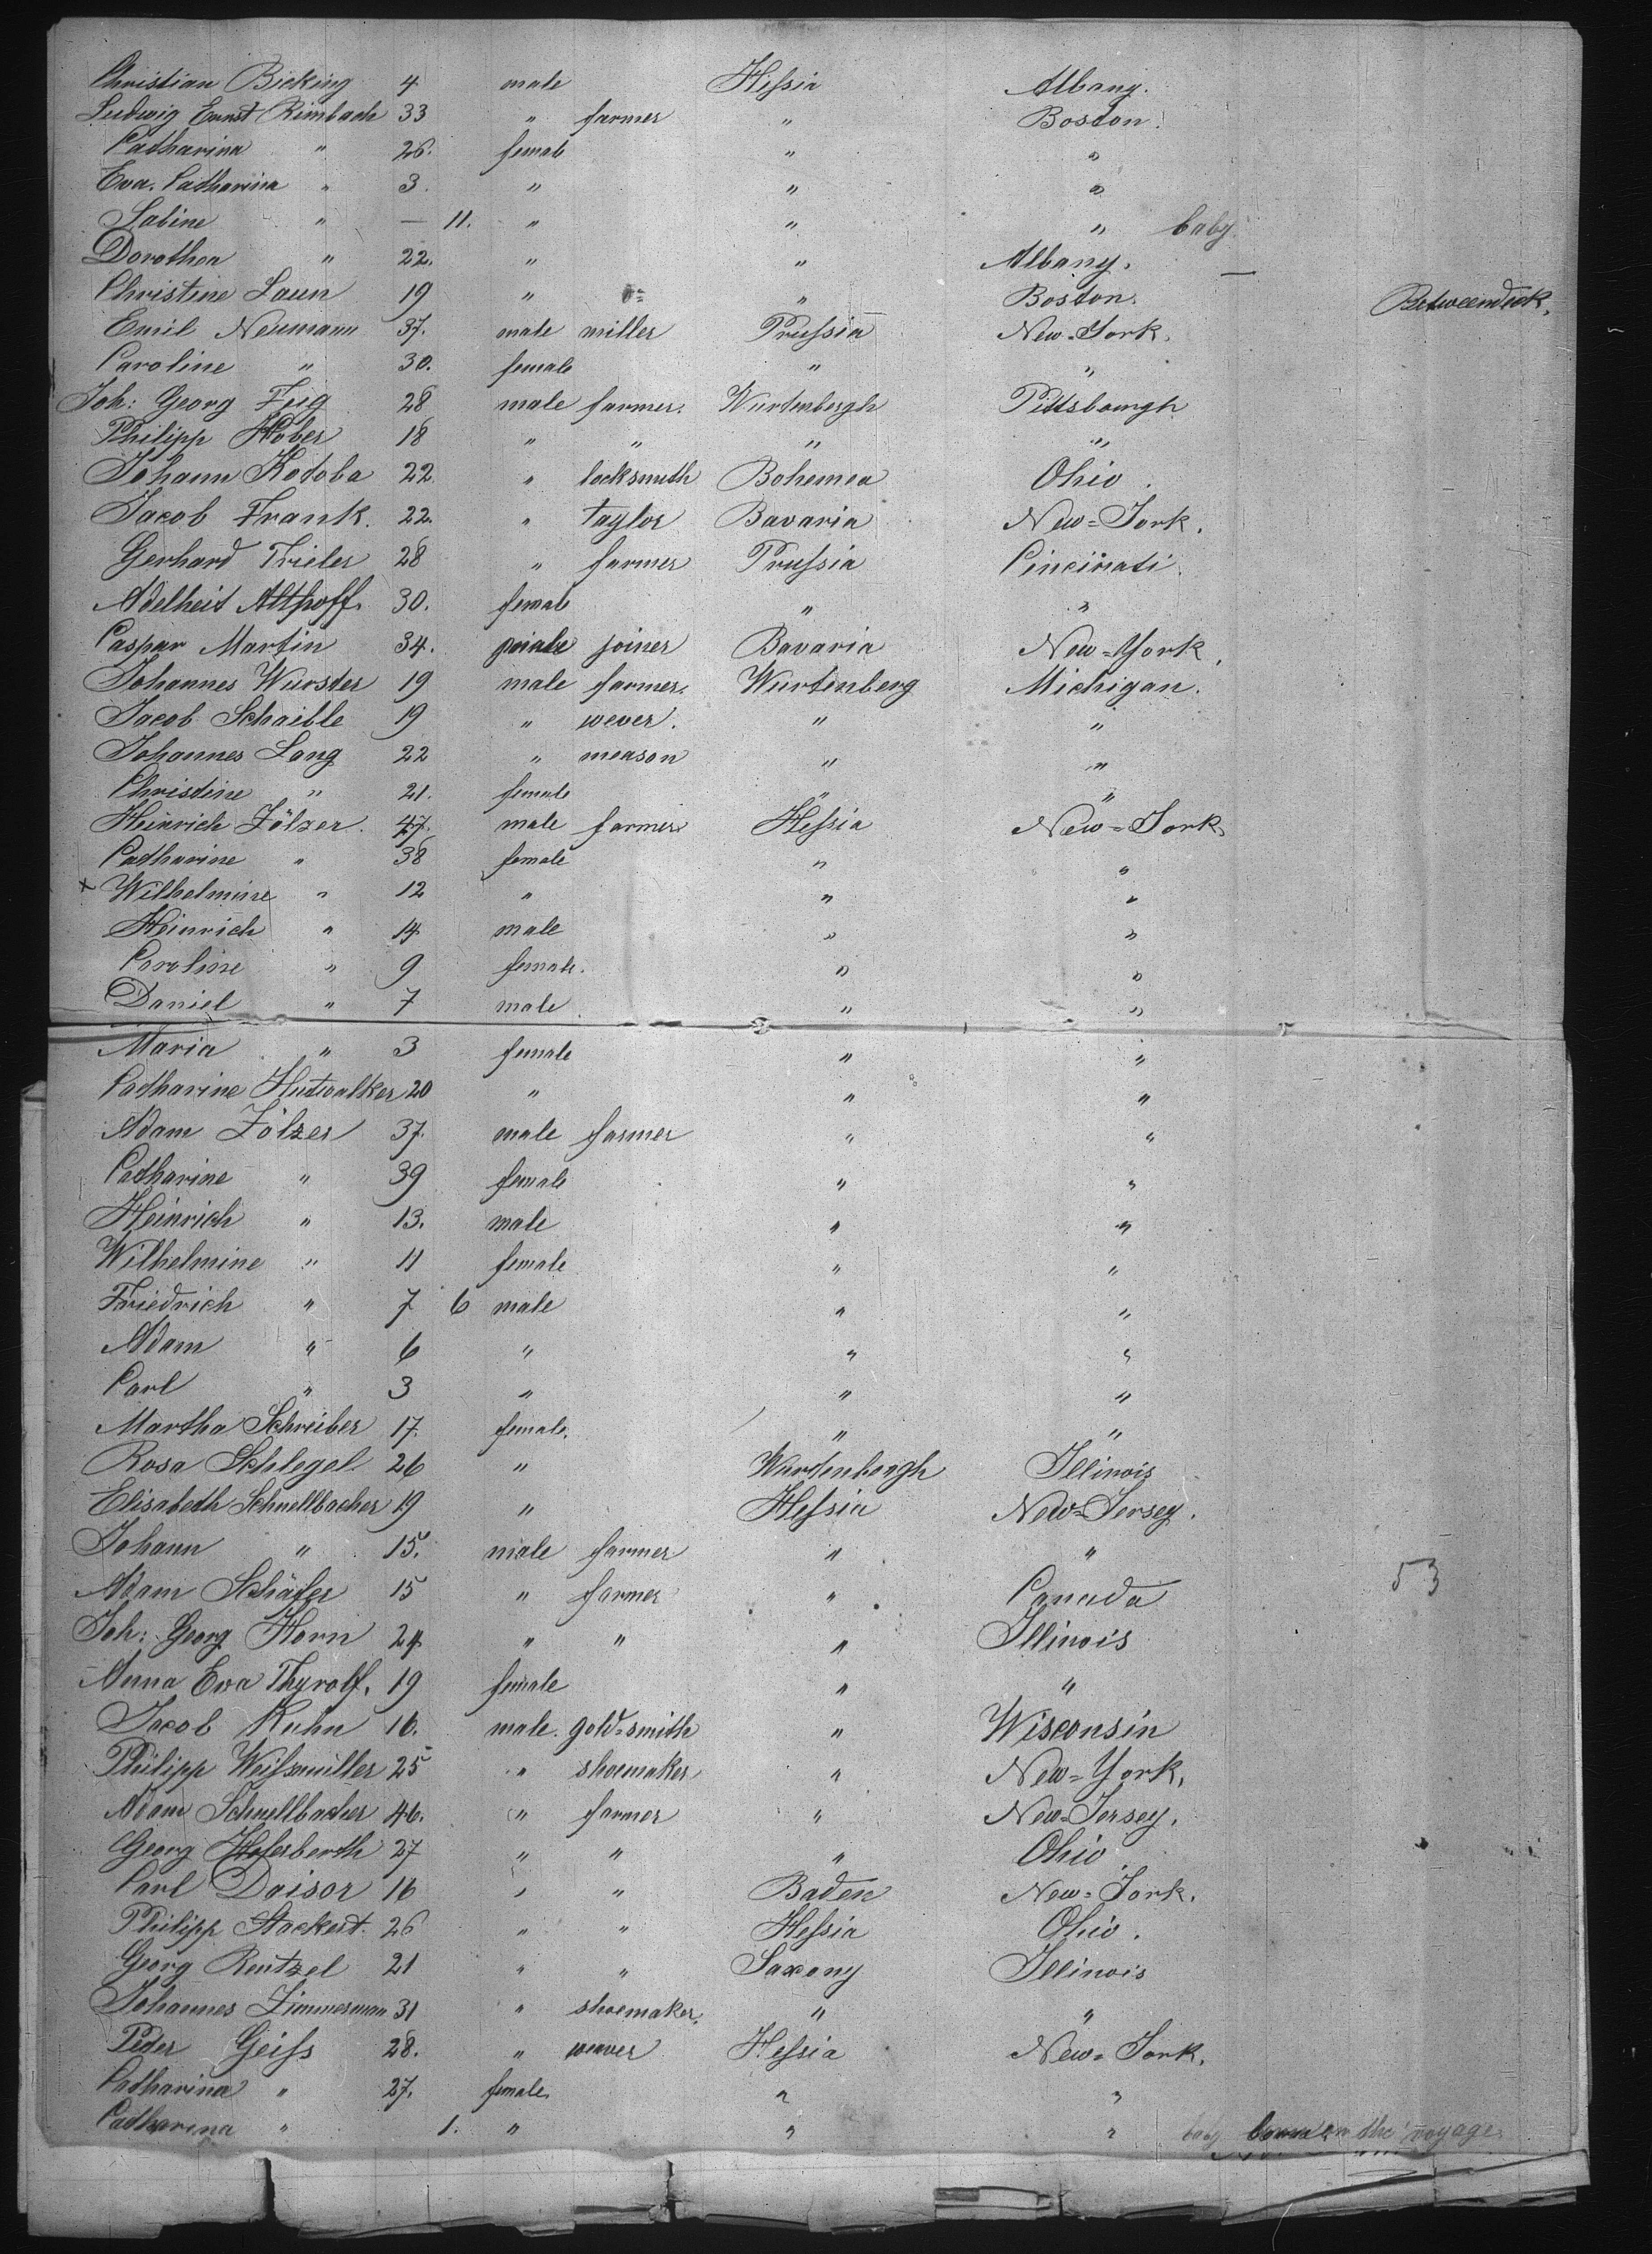 Christian Bicking 4 male Hessia Albany.
Ludwig Ernst Rimbach 33 " farmer " Boston.
Catharina " 26. female " "
Eva. Catharina " 3. " " "
Sabine " — 11. " " " baby.
Dorothea " 22. " " Albany.
Christine Laun 19 " " Boston. Betweendeck.
Emil Neumann 37. male miller Prussia New-York.
Caroline " 30. female " "
Joh: Georg Feig 28 male farmer. Wurtenbergh Pittsbourgh
Philipp Hober 18 " " " "
Johann Kotoba 22. " locksmith Bohemea Ohio.
Jacob Frank. 22. " taylor Bavaria New=York.
Gerhard Trieler 28 " farmer Prussia Cincinati.
Adelheit Althoff. 30. female " "
Caspar Martin 34. male joiner Bavaria New=York,
Johannes Wurster 19 male farmer. Wurtenberg Michigan.
Jacob Schaible 19 " wever. " "
Johannes Lang 22 " meason " "
Christine " 21. female " "
Heinrich Zölzer. 47. male farmer Hessia New=York
Catharine " 38 female " "
x Wilhelmine " 12 " " "
Heinrich " 14 male " "
Caroline " 9 female. " "
Daniel " 7 male. " "
Maria " 3 female " "
Catharine Hutwalker 20 " " "
Adam Zölzer 37. male farmer " "
Catharine " 39 female " "
Heinrich " 13. male " "
Wilhelmine " 11 female " "
Friedrich " 7 6 male " "
Adam " 6 " " "
Carl " 3 " " "
Martha Schreiber 17. female. " "
Rosa Schlegel 26 " Wurtenbergh Illinois
Elisabeth Schnellbacher 19 " Hessia New=Jersey.
Johann " 15. male farmer " "
Adam Schäfer 15 " farmer " Canada 53
Joh: Georg Horn 24. " " " Illinois
Anna Eva Thyrolf. 19 female " "
Jacob Kuhn 16. male. gold=smith " Wisconsin
Philipp Weissmüller 25 " shoemaker " New=York,
Adam Schnellbacher 46. " farmer " New=Jersey.
Georg 27 " " " Ohio.
Carl Daisor 16 " " Baden New=York.
Philipp Stockert. 26 " " Hessia Ohio.
Georg Rentzel 21 " " Saxony Illinois
Johannes Zimmerman 31 " shoemaker. " "
Peter Geiss 28. " weaver Hessia New=York.
Catharina " 27. female " "
Catharina " 1. " " " baby born on the voyage